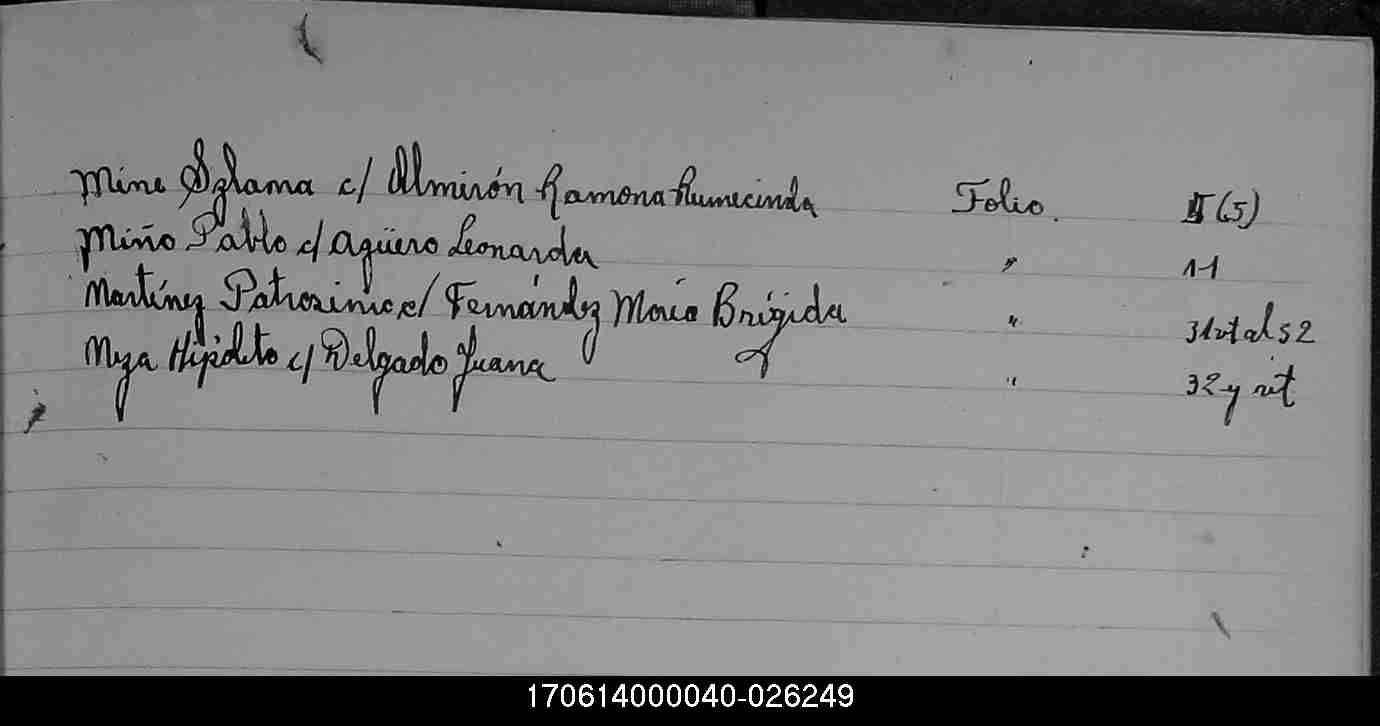 Mine Szlama c/ Almirón Ramona Rumecinda Folio. (5)
Miño Pablo c/ Agüero Leonarda " 11
Martínez Patrosinio c/ Fernández María Brígida " 31
Meza Hipólito c/ Delgado Juana " 32 y
170614000040-026249